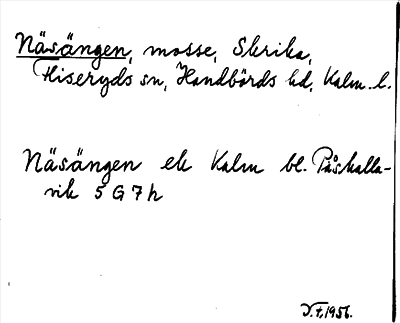 Näsängen, mosse, Skrika,
Hiseryds sn, Handbörds hd, Kalm. l.
Näsängen ek Kalm bl. Påskalla-
vik 5 G 7 h
V.t. 1956.